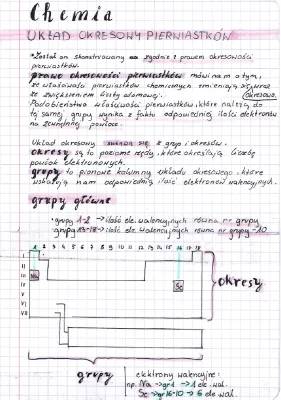 Chemia
UKŁAD OKRESOWY PIERWIASTKÓW
• Został on skonstruowany zgodnie z prawem okresowości
pierwiastków.
prawo okresowości pierwiastków mówi nam o tym,
że właściwości pierwiastków chemicznych zmieniają się wraz
ze zwiększeniem liczby atomowej. okresowo.
Podobieństwo właściwości pierwiastków, które należą do
tej samej grupy wynika z faktu odpowiedniej ilości elektronów
na zewnętrznej powłoce.
Układ okresowy składa się z grup i okresów.
okresy są to poziome rzędy, które określają liczbę
powłok elektronowych.
grupy to pionowe kolumny układu okresowego, które
wskazują nam odpowiednią ilość elektronów walencyjnych.
grupy główne
• grupy 1-2 → ilość el. walencyjnych równa nr grupy
grupy 13-18 → ilość el. walencyjnych równa nr grupy -10
1 2 3 4 5 6 7 8 9 10 11 12 13 14 15 16 17 18
I
II
III Na
IV Se
V
VI
VII
okresy
grupy
elektrony walencyjne:
np. Na → gr 1 → 1 el. wal.
Se → gr 16-10 → 6 el. wal.